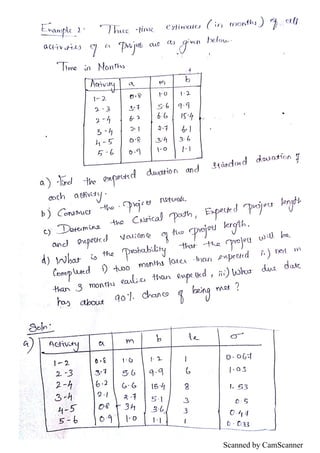 Example 2: Three-time estimates (in months) of all
activities of a project are as given below.
Time in Months
Activity a m b
1-2 0.8 1.0 1.2
2-3 3.7 5.6 9.9
2-4 6.2 6.6 15.4
3-4 2.1 2.7 6.1
4-5 0.8 3.4 3.6
5-6 0.9 1.0 1.1
a) Find the expected duration and standard deviation of
each activity.
b) Construct the project network.
c) Determine the Critical path, Expected project length
and expected variance of the project length.
d) What is the probability that the project will be
Completed i) two months later than expected ii) not m
than 3 months earlier than expected, iii) What due date
has about 90% chance of being met?
Soln:
a) Activity a m b te σ
1-2 0.8 1.0 1.2 1 0.067
2-3 3.7 5.6 9.9 6 1.03
2-4 6.2 6.6 15.4 8 1.53
3-4 2.1 2.7 5.1 3 0.5
4-5 0.8 3.4 3.6 3 0.47
5-6 0.9 1.0 1.1 1 0.033
Scanned by CamScanner